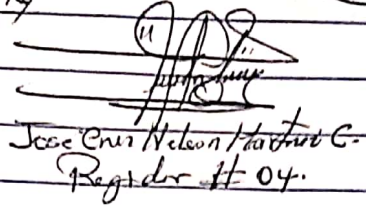 Jose Enir Nelson Martinez C.
Regidor # 04.